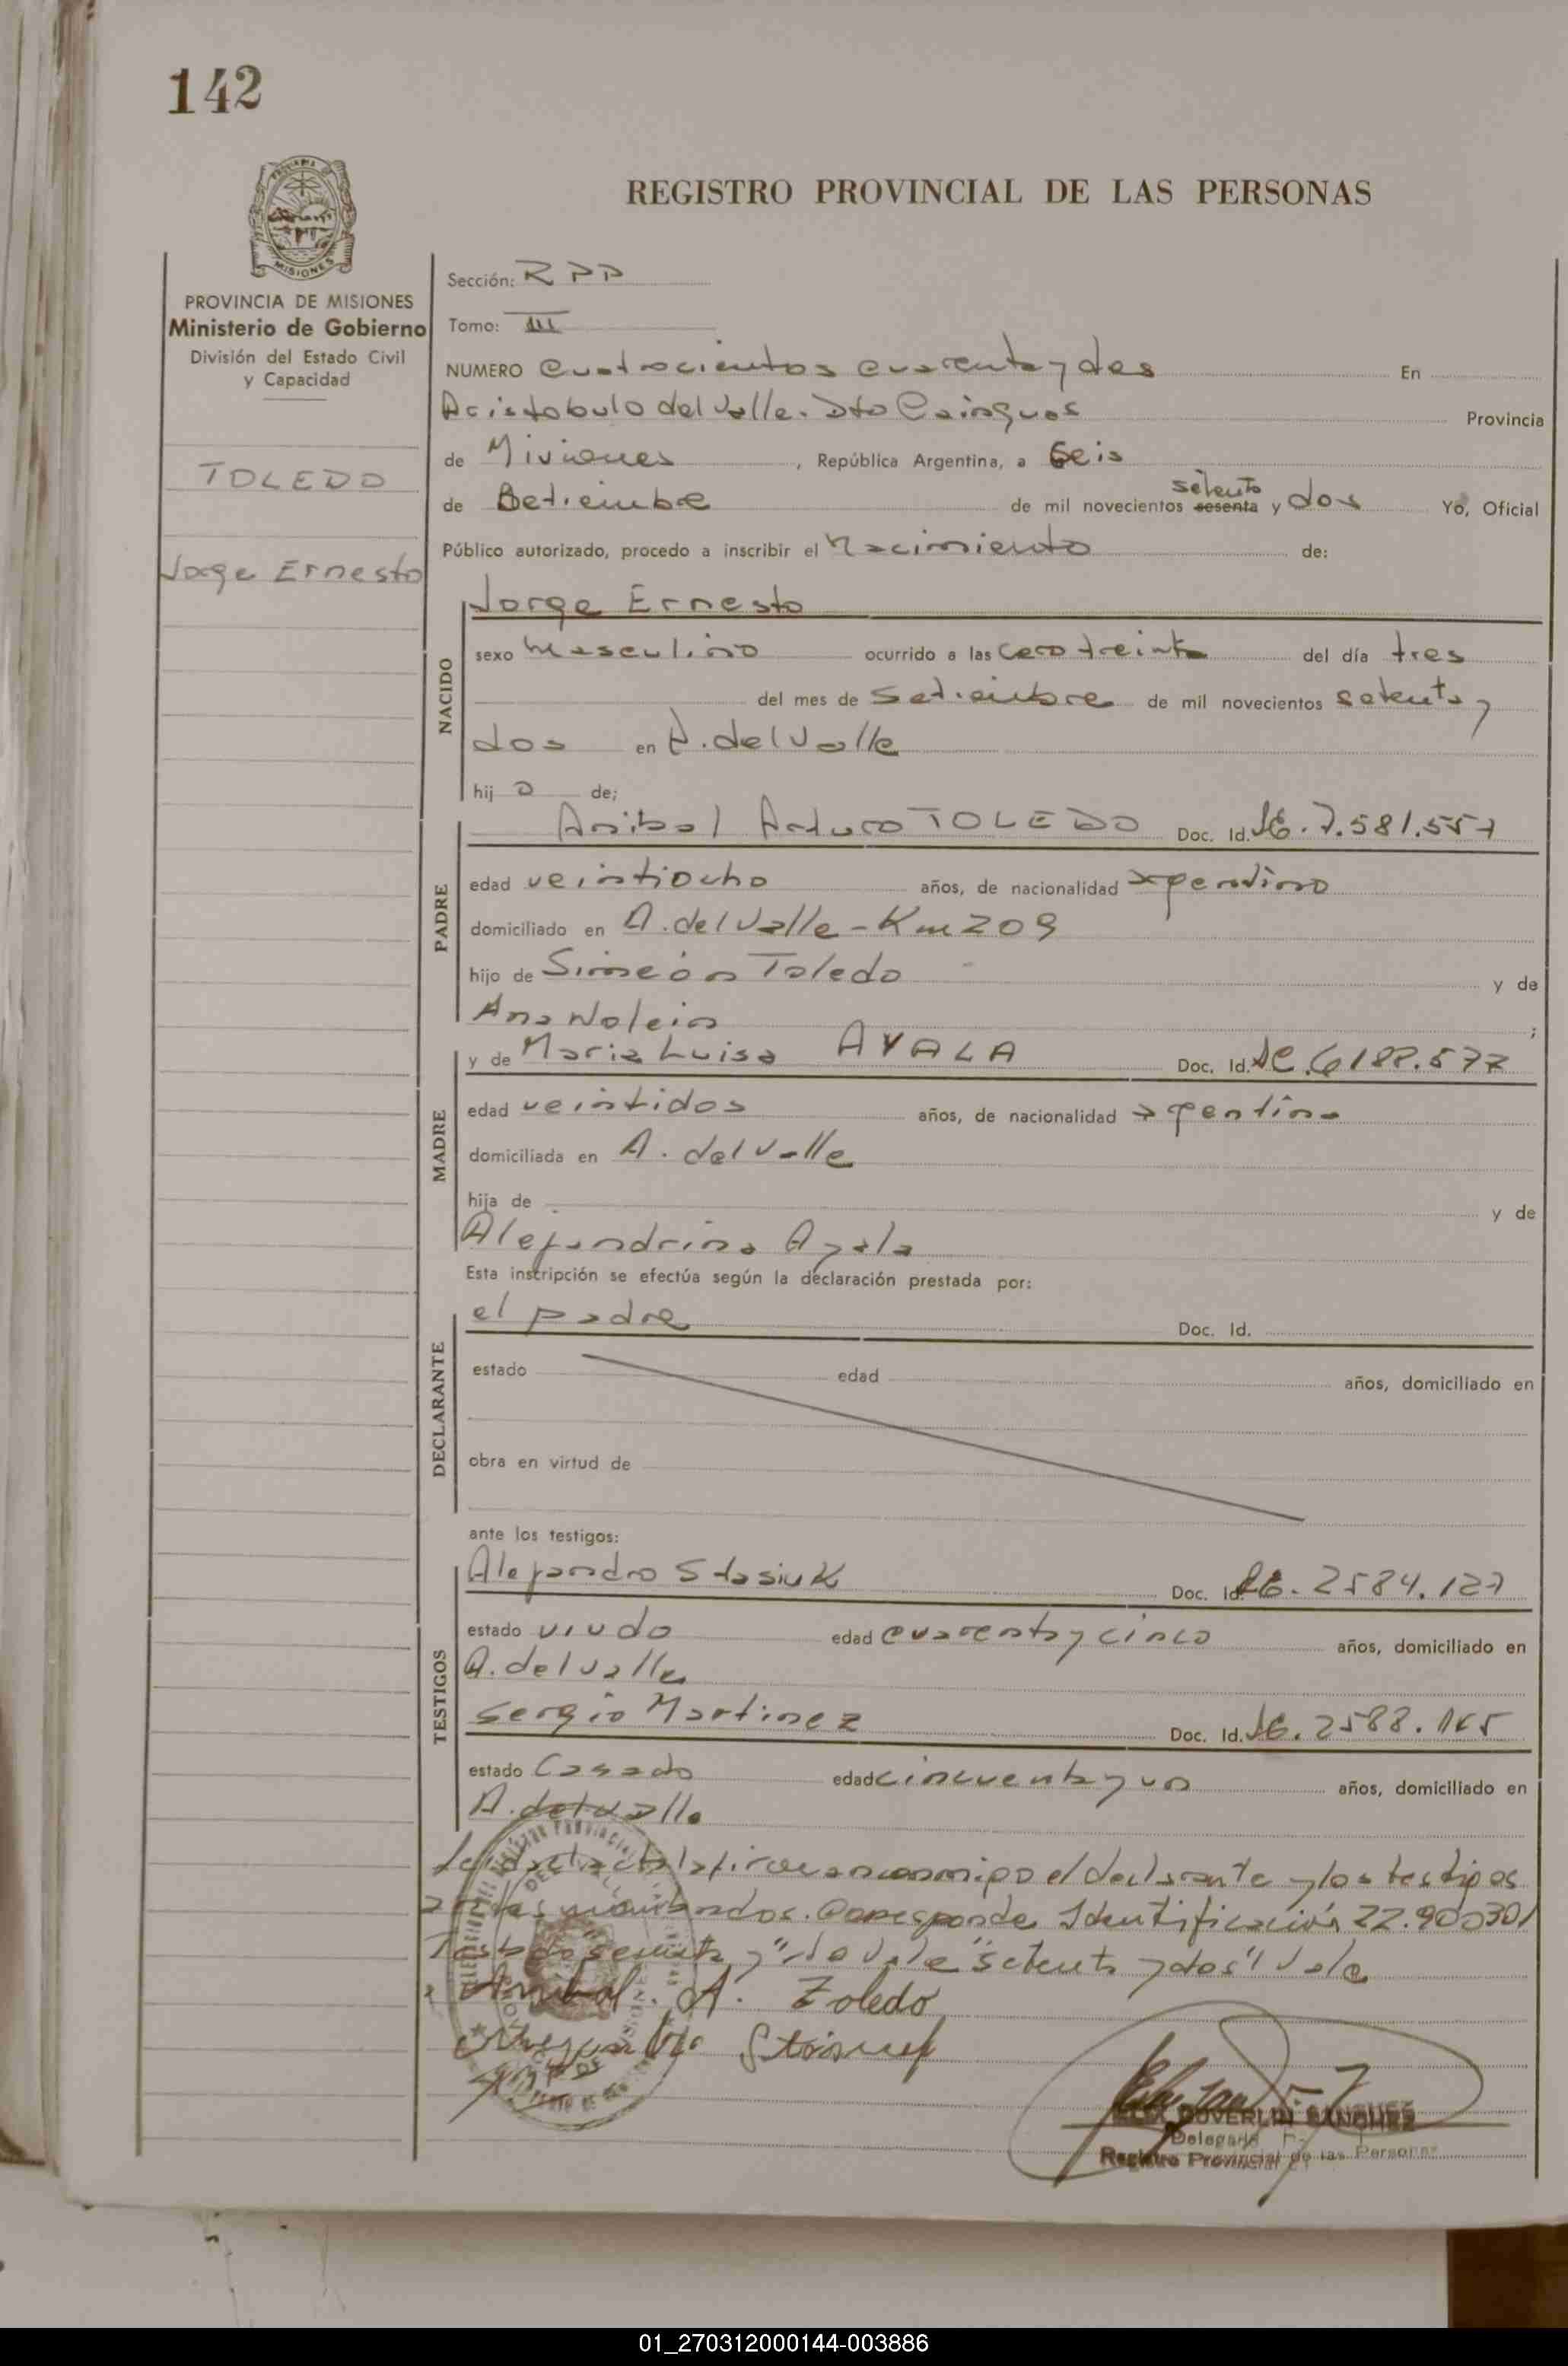 142
PROVINCIA DE MISIONES
Ministerio de Gobierno
División del Estado Civil
y Capacidad
TOLEDO
Jorge Ernesto
REGISTRO PROVINCIAL DE LAS PERSONAS
Sección: RPP
Tomo: III
NUMERO cuatrocientos cuarenta y dos En
Aristobulo del Valle. Dto Cainguas Provincia
de Misiones, República Argentina, a Seis
de Setiembre de mil novecientos sesenta setenta y dos Yo, Oficial
Público autorizado, procedo a inscribir el Nacimiento de:
NACIDO
Jorge Ernesto
sexo masculino ocurrido a las cero treinta del día tres
del mes de Setiembre de mil novecientos setenta y
dos en A. del Valle
hij o de;
PADRE
Anibal Arturo TOLEDO Doc. Id. 7.581.557
edad veintiocho años, de nacionalidad argentino
domiciliado en A. del Valle - Km 209
hijo de Simeón Toledo y de
Ana Nolein;
MADRE
y de Maria Luisa AYALA Doc. Id. 6188.577
edad veintidos años, de nacionalidad argentina
domiciliada en A. del Valle
hija de y de
Alejandrina Ayala
Esta inscripción se efectúa según la declaración prestada por:
DECLARANTE
el padre Doc. Id.
estado edad años, domiciliado en
obra en virtud de
ante los testigos:
TESTIGOS
Alejandro Stasiuk Doc. Id. 2584.127
estado viudo edad cuarenta y cinco años, domiciliado en
A. del Valle
Sergio Martinez Doc. Id. 2588.
estado Casado edad cincuenta y un años, domiciliado en
A. del Valle
Leida el acta la firman conmigo el declarante y los testigos
antes nombrados. Corresponde Identificación 22.900301
Testado "sesenta y" no vale "setenta y dos" vale
Anibal. A. Toledo
SANCHEZ
Delegado
Registro Provincial de las Personas
01_270312000144-003886